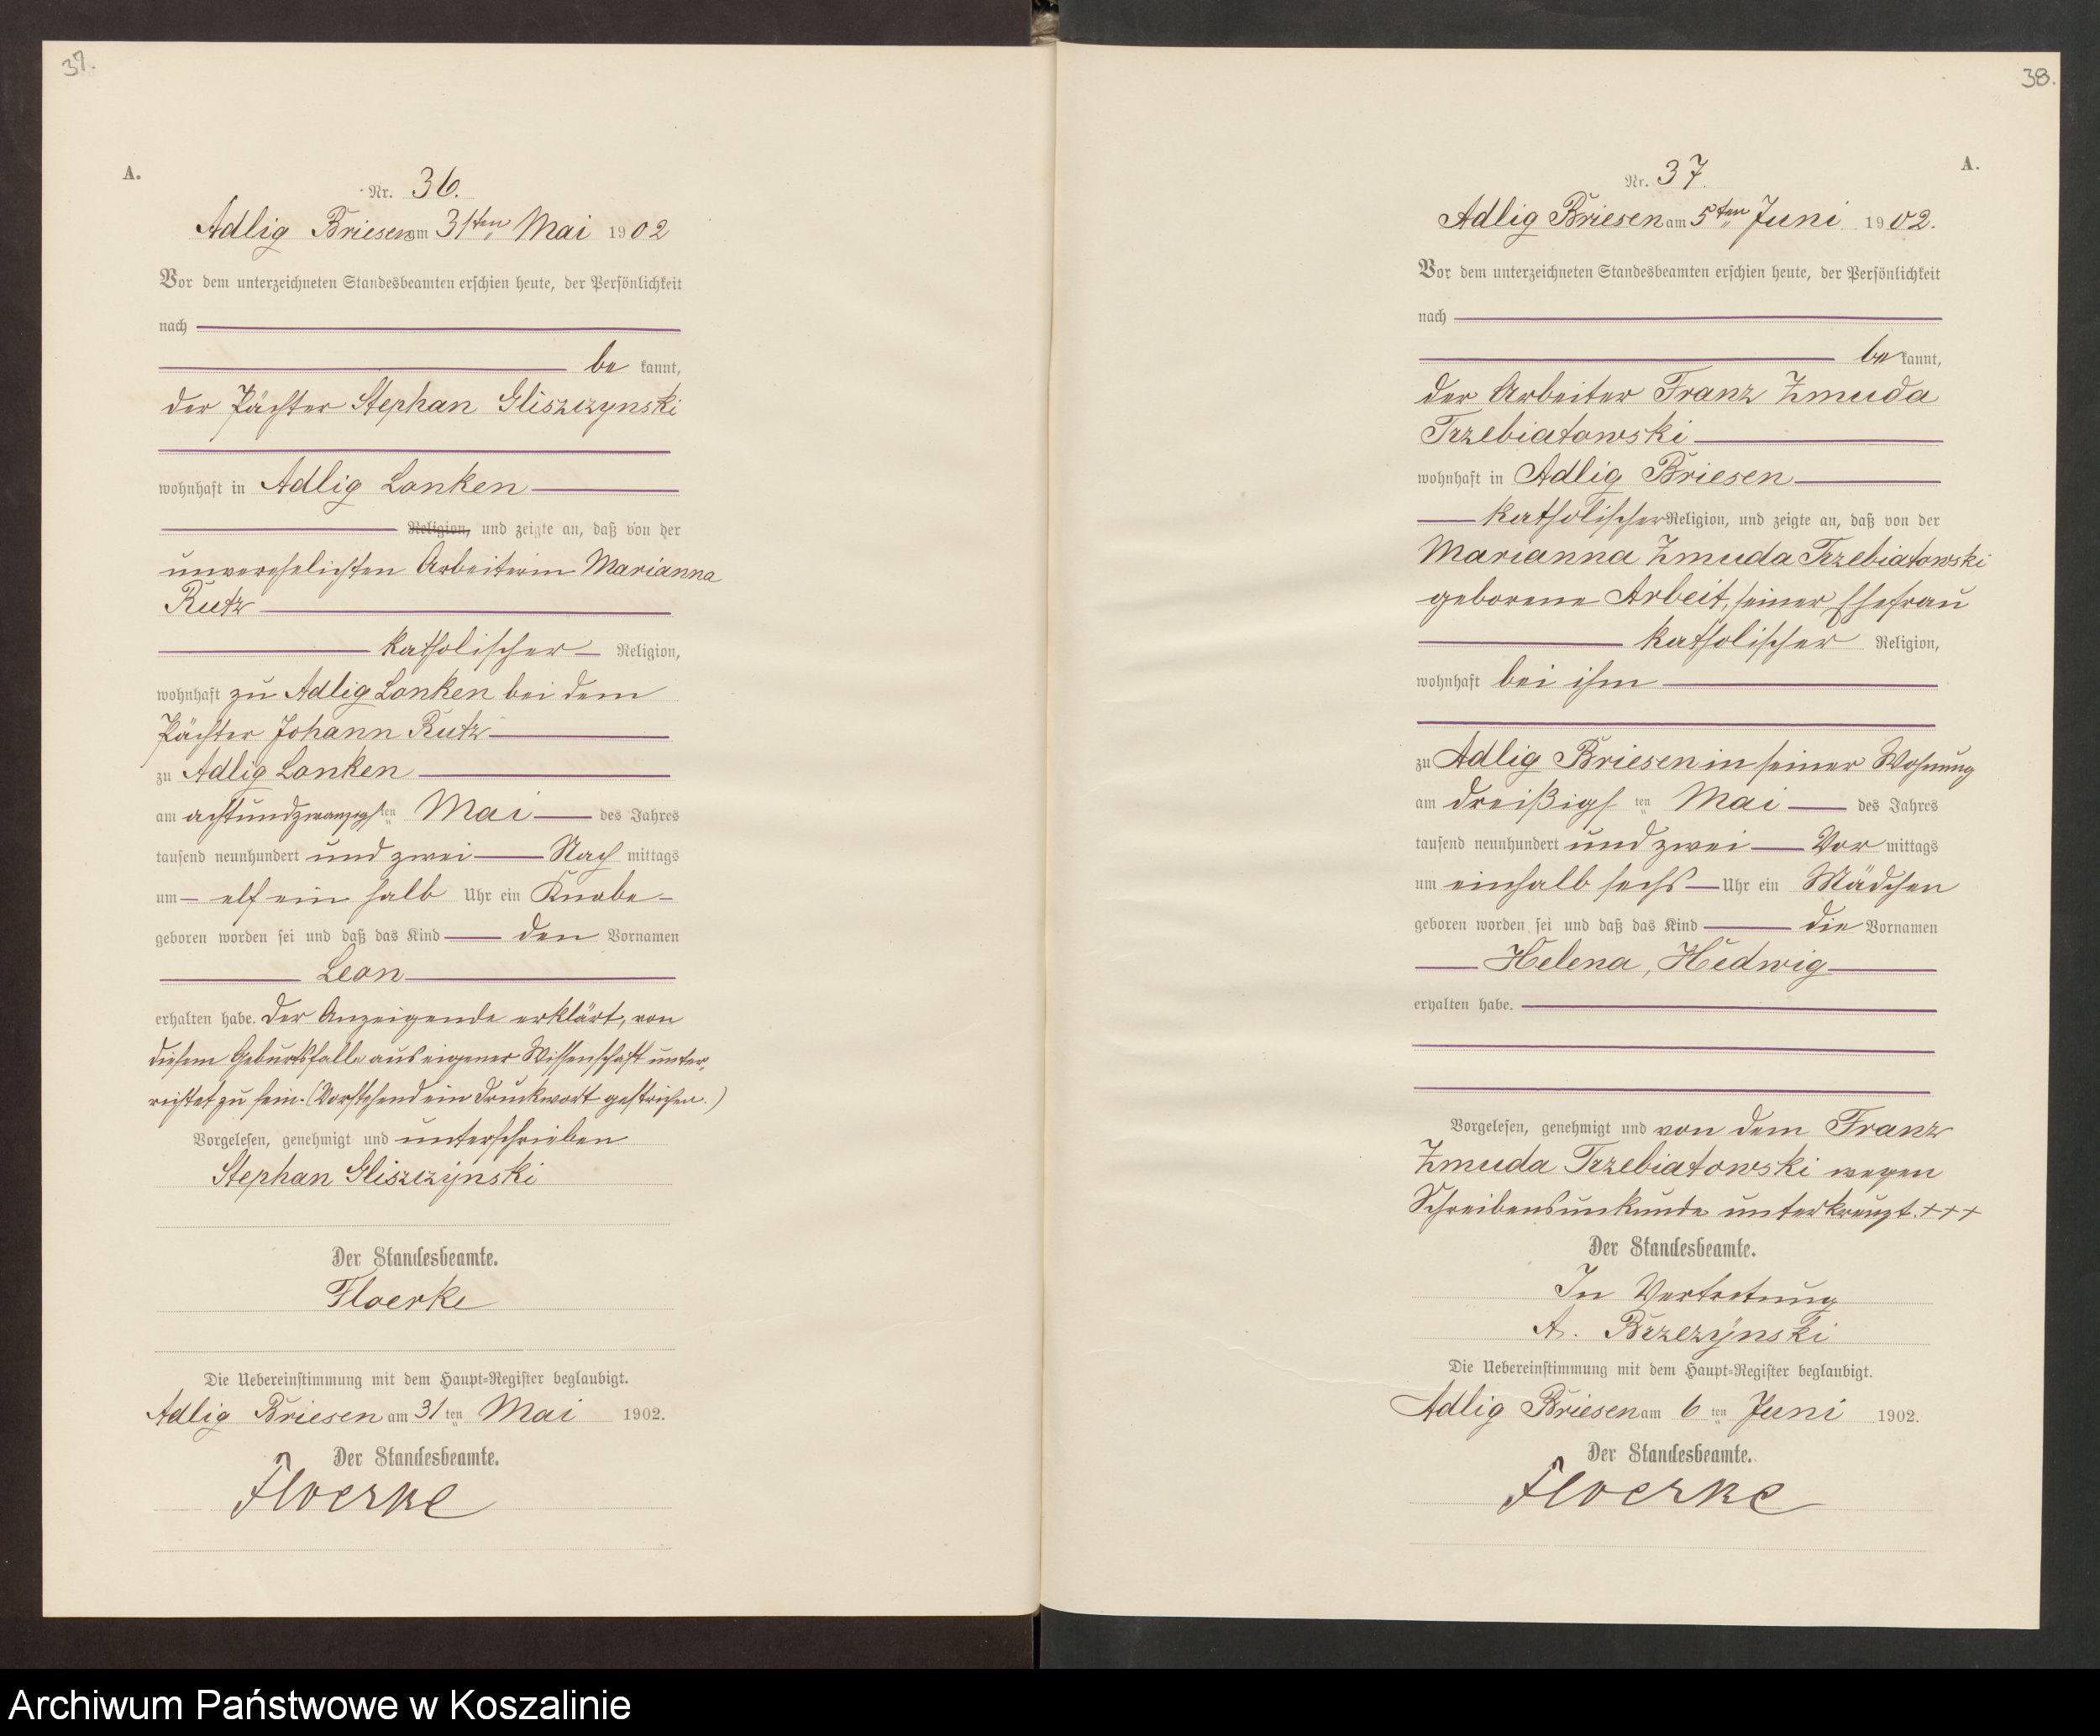 37.
A.
Nr. 36.
Adlig Briesen am 31ten Mai 1902
Vor dem unterzeichneten Standesbeamten erschien heute, der Persönlichkeit
nach
be kannt,
der Pächter Stephan Gliszczynski
wohnhaft in Adlig Lonken
Religion, und zeigte an, daß von der
unverehelichten Arbeiterin Marianna
Rutz
katholischer Religion,
wohnhaft zu Adlig Lonken bei dem
Pächter Johann Rutz
zu Adlig Lonken
am achtundzwanzigsten Mai des Jahres
tausend neunhundert und zwei Nach mittags
um elf ein halb Uhr ein Knabe
geboren worden sei und daß das Kind den Vornamen
Leon
erhalten habe. Der Anzeigende erklärt, von
diesem Geburtsfalle aus eigener Wissenschaft unter-
richtet zu sein. (Vorstehend ein Druckwort gestrichen.)
Vorgelesen, genehmigt und unterschrieben
Stephan Gliszczynski
Der Standesbeamte.
Floerke
Die Uebereinstimmung mit dem Haupt-Register beglaubigt.
Adlig Briesen am 31 ten Mai 1902.
Der Standesbeamte.
Floerke
38.
A.
Nr. 37.
Adlig Briesen am 5ten Juni 1902.
Vor dem unterzeichneten Standesbeamten erschien heute, der Persönlichkeit
nach
be kannt,
der Arbeiter Franz Zmuda
Trzebiatowski
wohnhaft in Adlig Briesen
katholischer Religion, und zeigte an, daß von der
Marianna Zmuda Trzebiatowski
geborene Arbeit, seiner Ehefrau
katholischer Religion,
wohnhaft bei ihm
zu Adlig Briesen in seiner Wohnung
am dreißigsten Mai des Jahres
tausend neunhundert und zwei Vor mittags
um einhalb sechs Uhr ein Mädchen
geboren worden sei und daß das Kind die Vornamen
Helena, Hedwig
erhalten habe.
Vorgelesen, genehmigt und von dem Franz
Zmuda Trzebiatowski wegen
Schreibensunkunde unterkreuzt. +++
Der Standesbeamte.
In Vertretung
A. Brzezynski
Die Uebereinstimmung mit dem Haupt-Register beglaubigt.
Adlig Briesen am 6 ten Juni 1902.
Der Standesbeamte.
Floerke
Archiwum Państwowe w Koszalinie